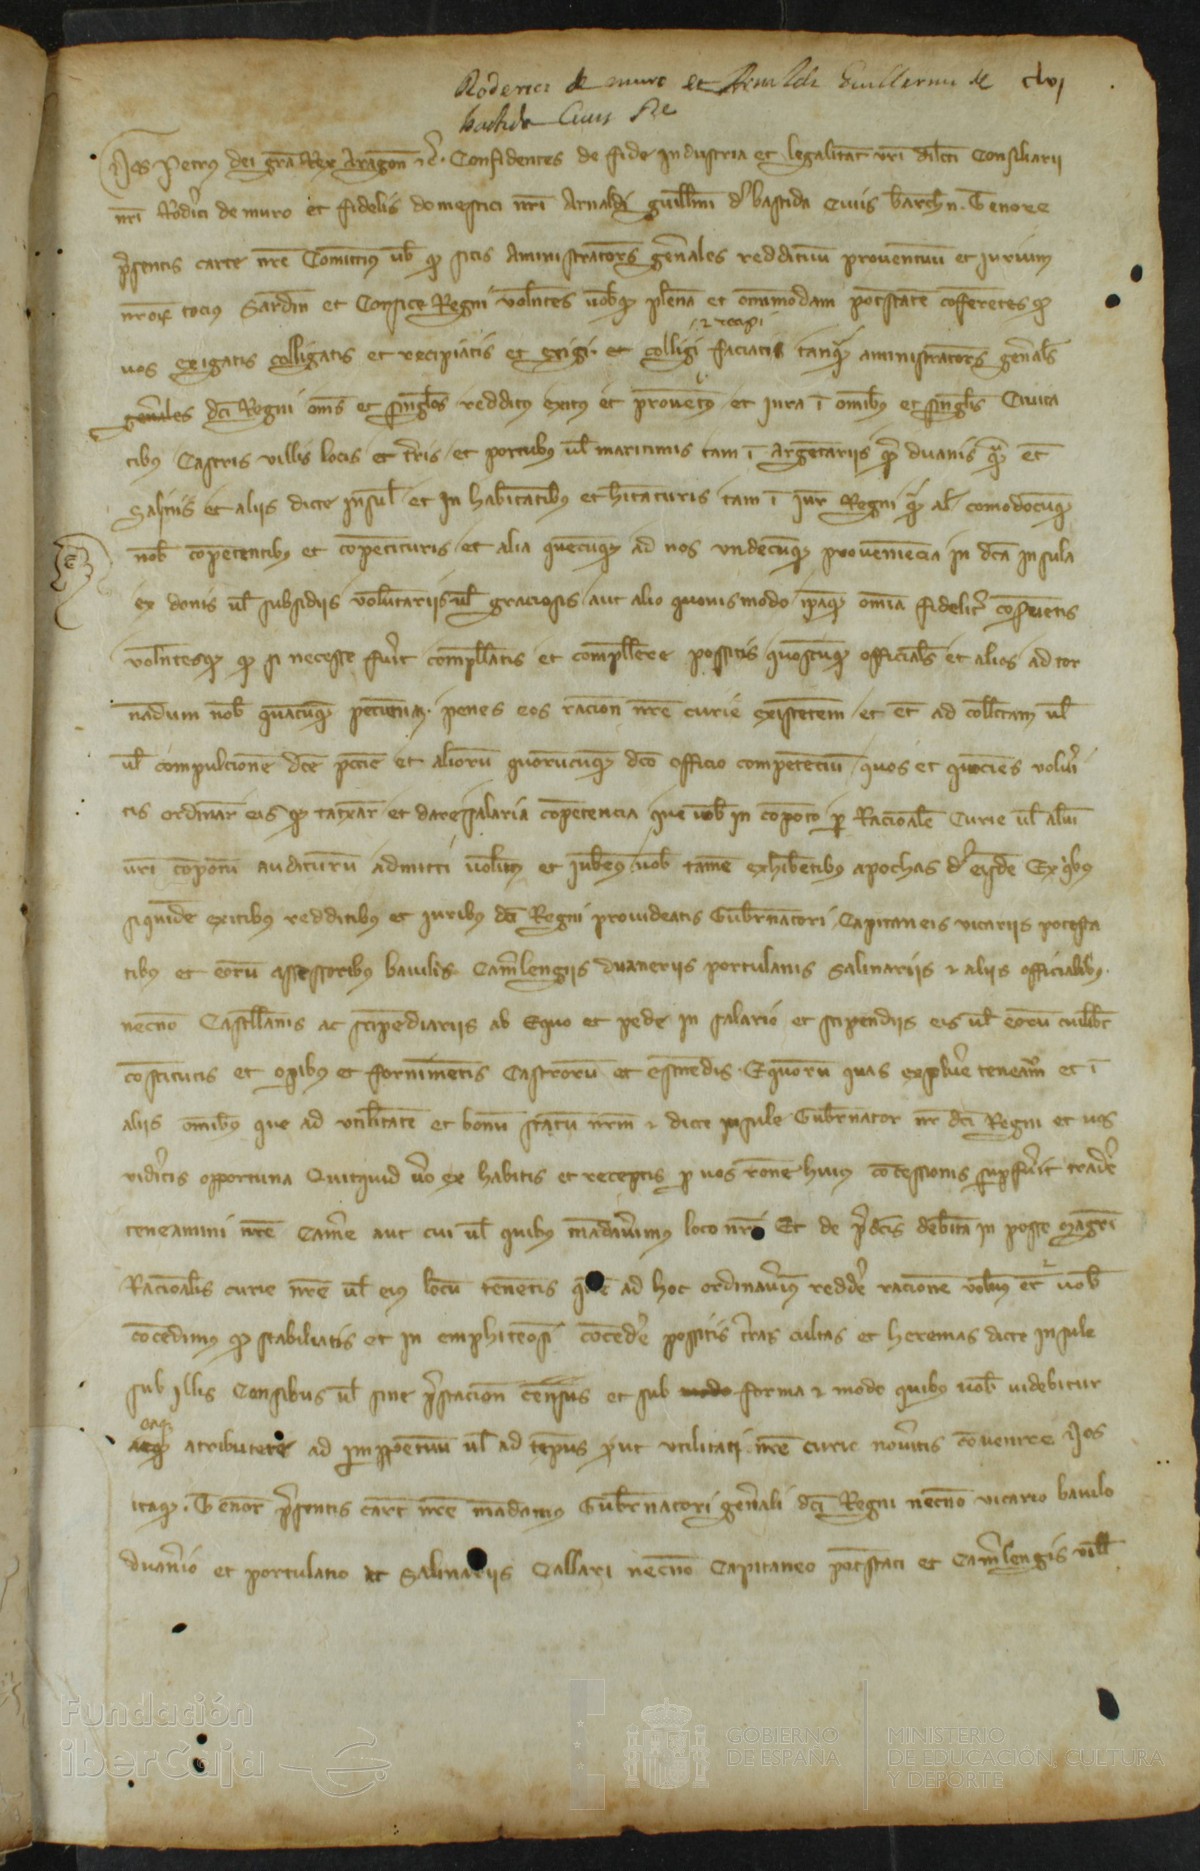 Roderici de muro et Arnaldi Guillermi de clvj
bastida Civis
Nos Petrus dei gra Rex Aragon ec. Confidentes de fide industria et legalitate vri dilcti Consiliarii
nri Roderici de muro et fidelis domestici nri Arnaldi guillmi de bastida Civis barchn. Tenore
psentis carte nre Comittims vob qd sitis Aministratores genales reddituu proventuu et iurium
nror tocius Sardin et Corsice Regni volntes vobq plena et omnimodam potstate cofferentes qd
vos exigatis colligatis et recipiatis et exigi et colligi & recipi faciatis tanq aministratores genals
genales dci Regni oms et singlos redditus exitus et provetus et iura i omibus et singlis Civita
tibus Castris villis locis et tris et portubus ul maritimis tam i Argetariis q duanis q et
Salinis et aliis dicte insule et in habitatibus et hitaturis tam i iur Regni q al comodocuq
nob copetentibus et copetituris et alia quecuq ad nos undecuq proveniecia in dca insula
ex donis ul subsidiis volutariis ul graciosis aut alio quovismodo ipaq omia fidelit
volntesq qd si necesse fuit compllatis et compllere possitis quoscuq officials et alios ad tor
nadum nob quacuq peccuniam penes eos racion nre curie existetem et et ad collctam ul
ul compulcione dce pccie et alioru quorucuq dco officio competeciu quos et quocies volui
tis ordinar eis qd taxar et dare salaria copetencia que vob in copoto p Racionale Curie ul alui
vri copotu audituru admitti volums et iubems vob tame exhibetibus apochas d eisde Ex qbus
siquide exitibus redditibus et iuribus dci Regni provideatis Gubrnatori Capitaneis vicariis potesta
tibus et eoru assessoribus baiulis Camlengiis duaneriis portulanis Salinariis & aliis officialibus
necno Castllanis ac stipediariis ab Equo et pede in salario et stipendiis eis ul eoru cuilibt
costitutis et opibus et fornimetis Castroru et esmedis Equoru quas teneam et i
aliis omibus que ad utilitate et bonu statu nrm & dicte insule Gubrnator nr dci Regni et vos
viditis opportuna Quitquid vo ex habitis et receptis p vos rone huius cocessionis supfuit tradere
teneamini nre Came aut cui ul quibus madavimus loco nri Et de pdcis debita in posse magri
Racionalis curie nre ul eius locu tenetis que ad hoc ordinavims reddere racione volums et & vob
cocedimus qd stabiliatis et in emphiteosi cocede possitis tras cultas et heremas dicte insule
sub illis Censibus ul sine pstacion census et sub modo forma & modo quibus vob videbitur
eaq
atributere ad imppetuu ul ad tepus put utilitati nre curie novitis covenire Nos
itaq. Tenor psentis cart nre madamus Gubrnatori genali dci Regni necno vicario baiulo
duanio et portulano et Salinariis Callari necno Capitaneo potstati et Camlengis vill
Fundación
iberCaja
GOBIERNO
DE ESPAÑA
MINISTERIO
DE EDUCACIÓN, CULTURA
Y DEPORTE